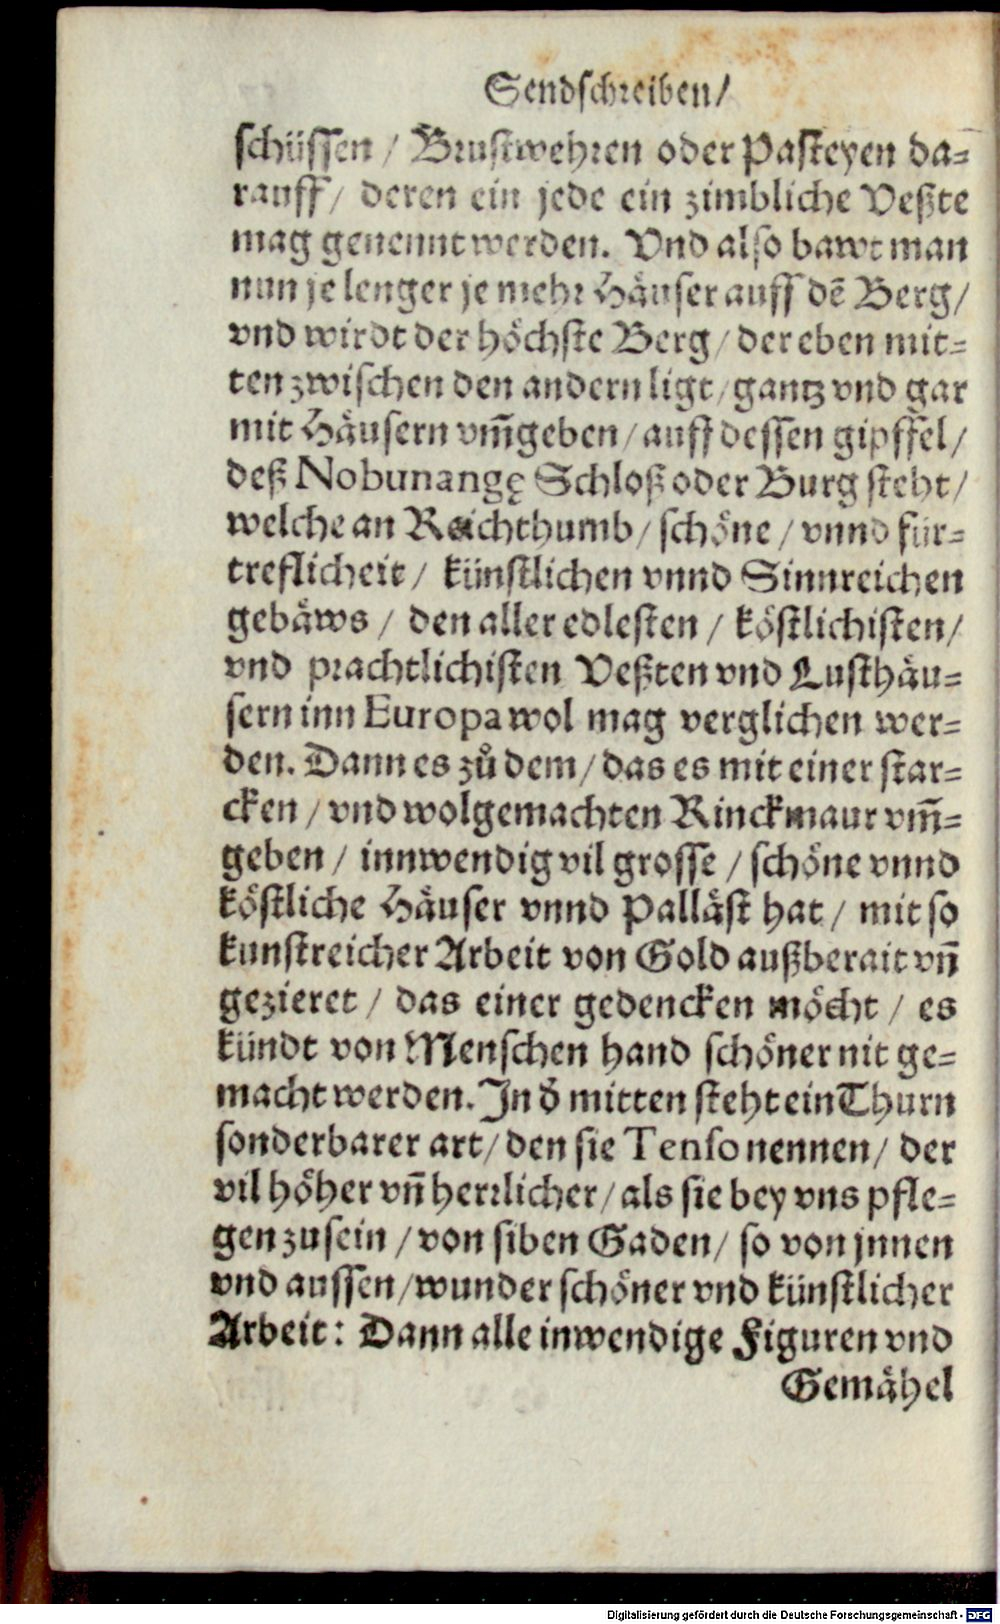 Sendschreiben/
schüssen / Brustwehren oder Pasteyen da-
rauff/ deren ein jede ein zimbliche Veßte
mag genennt werden. Vnd also bawt man
nun je lenger je mehr Häuser auff dē Berg/
vnd wirdt der höchste Berg/ der eben mit-
ten zwischen den andern ligt/ gantz vnd gar
mit Häusern vm̄geben/ auff dessen gipffel/
deß Nobunangę Schloß oder Burg steht/
welche an Reichthumb/ schöne / vnnd für-
treflicheit/ künstlichen vnnd Sinnreichen
gebäws / den aller edlesten / köstlichisten/
vnd prachtlichisten Veßten vnd Lusthäu-
sern inn Europa wol mag verglichen wer-
den. Dann es zů dem/ das es mit einer star-
cken / vnd wolgemachten Rinckmaur vm̄-
geben/ innwendig vil grosse / schöne vnnd
köstliche Häuser vnnd Palläst hat/ mit so
kunstreicher Arbeit von Gold außberait vñ
gezieret / das einer gedencken möcht / es
kündt von Menschen hand schöner nit ge-
macht werden. In d̄ mitten steht ein Thurn
sonderbarer art/ den sie Tenso nennen/ der
vil höher vñ herrlicher/ als sie bey vns pfle-
gen zu sein / von siben Gaden/ so von jnnen
vnd aussen/ wunder schöner vnd künstlicher
Arbeit: Dann alle inwendige Figuren vnd
Gemähel
Digitalisierung gefördert durch die Deutsche Forschungsgemeinschaft - DFG